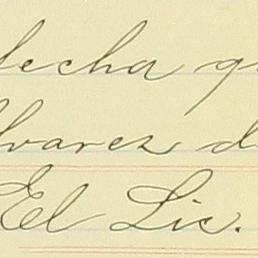 lecha qu
lvarez d
El Lic.